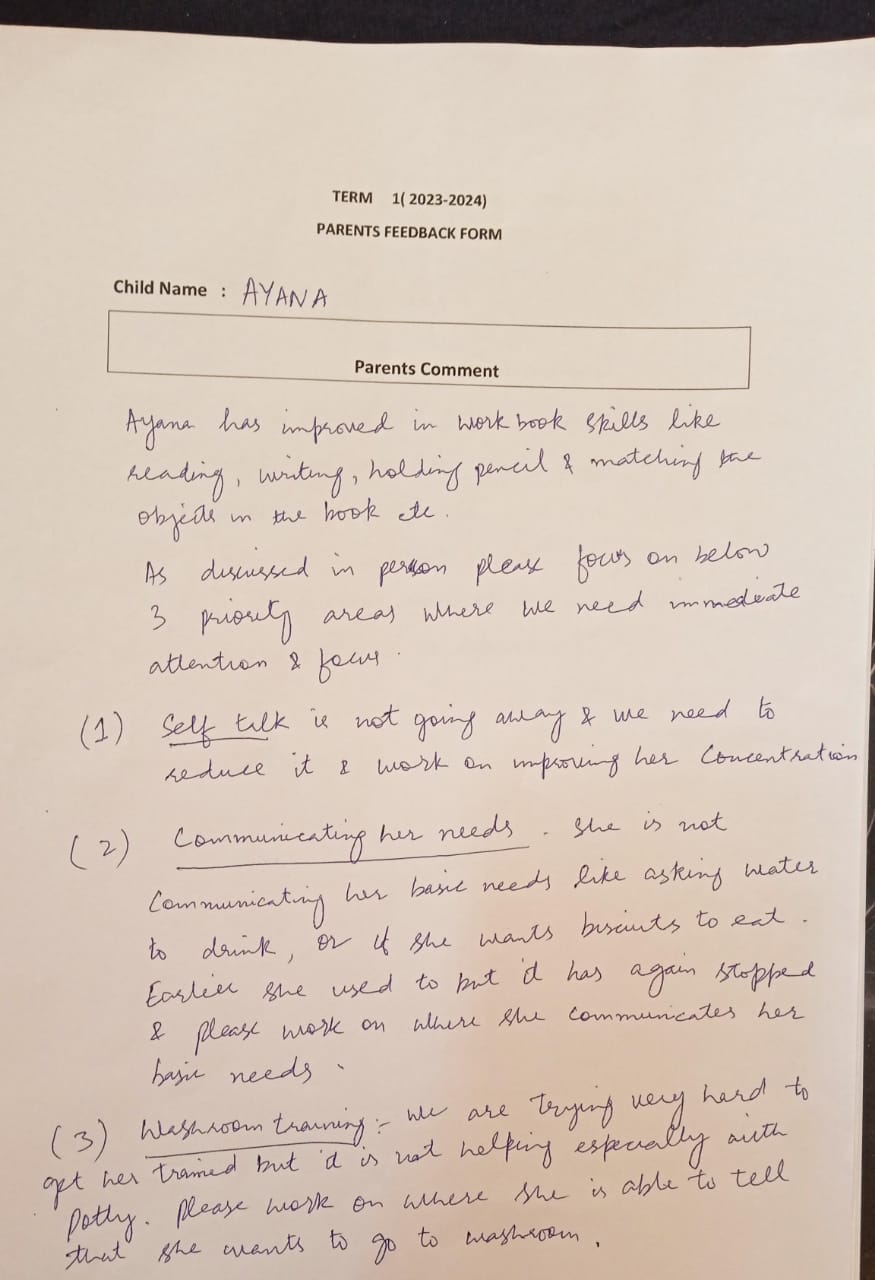 TERM 1( 2023-2024)
PARENTS FEEDBACK FORM
Child Name : AYANA
Parents Comment
Ayana has improved in work book skills like
reading, writing, holding pencil & matching the
objects in the book etc.
As discussed in person please focus on below
3 priority areas where we need immediate
attention & focus.
(1) Self talk is not going away & we need to
reduce it & work on improving her concentration
(2) Communicating her needs. She is not
communicating her basic needs like asking water
to drink, or if she wants biscuits to eat.
Earlier she used to but it has again stopped
& please work on where she communicates her
basic needs.
(3) Washroom training:- We are trying very hard to
get her trained but it is not helping especially with
Potty. Please work on where she is able to tell
that she wants to go to washroom.